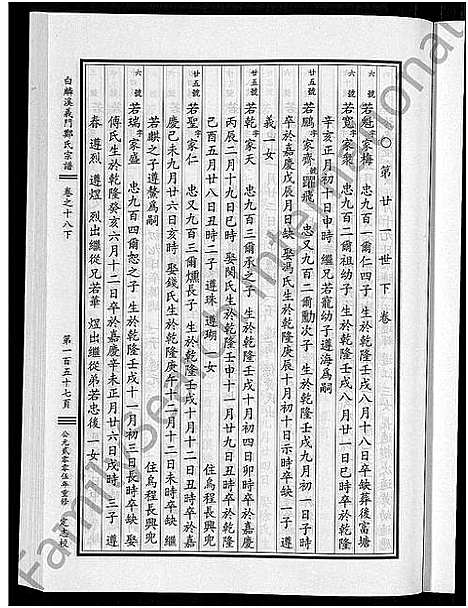 ○第廿一世下卷
六號 若魁字家梅 忠九百一爾仁四子 生於乾隆壬戌八月十八日卒缺葬後富塘
六號 若寬字家眾 忠九百二爾祖幼子 生於乾隆壬戌八月廿一日巳時卒於乾隆
辛亥正月初十日申時 繼兄若龍幼子遵海為嗣
廿五號 若鵬字家齊號躍飛 忠又九百二爾勳次子 生於乾隆壬戌九月初一日子時
卒於嘉慶戊辰月日缺 娶馮氏生於乾隆庚辰十月初十日示時卒缺 一子 遵
義 一女
廿五號 若乾字家天 忠九百三爾承之子 生於乾隆壬戌十月初四日卯時卒於嘉慶
丙辰二月十九日巳時 娶閔氏生於乾隆壬申十一月廿九日丑時卒於乾隆
己酉五月廿八日丑時 二子 遵珠 遵瑚 一女 住烏程長興兜
廿五號 若聖字家仁 忠又九百三爾燻長子 生於乾隆壬戌十月十二日丑時卒於嘉
慶己未九月廿六日亥時 娶錢氏生於乾隆庚午十月十二日未時卒缺 繼
若麒之子遵鰲為嗣 住烏程長興兜
六號 若瑞字家盛 忠九百四爾恕之子 生於乾隆壬戌十一月初三日長時卒缺 娶
傅氏生於乾隆癸亥六月十二日卒於嘉慶辛未正月廿六日戌時 三子 遵
春 遵烈 遵煜 烈出繼從兄若華 煜出繼從弟若忠後 一女
白麟溪義門鄭氏宗譜 卷之十八下 第一百五十七頁 公元貳零零伍年重修 定志校
Family Search International